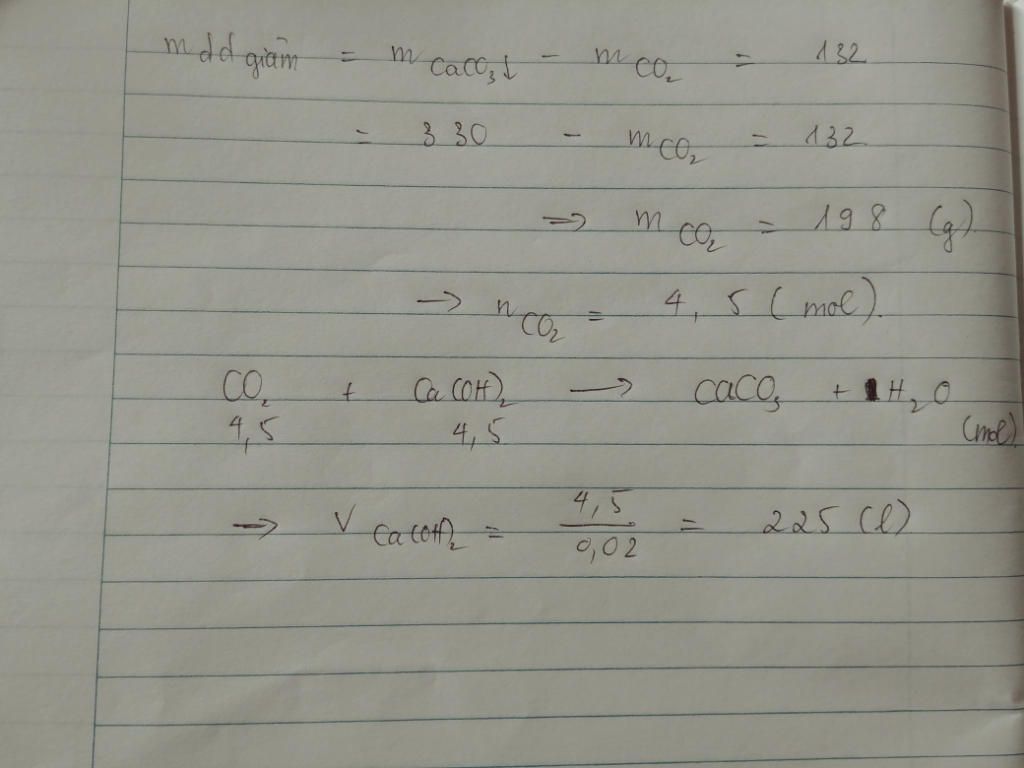 m dd giảm = m CaCO₃↓ - m CO₂ = 132
= 330 - m CO₂ = 132
=> m CO₂ = 198 (g)
-> n CO₂ = 4,5 (mol).
CO₂ + Ca(OH)₂ -> CaCO₃ + H₂O
4,5 4,5 (mol)
-> V Ca(OH)₂ = 4,5 / 0,02 = 225 (l)